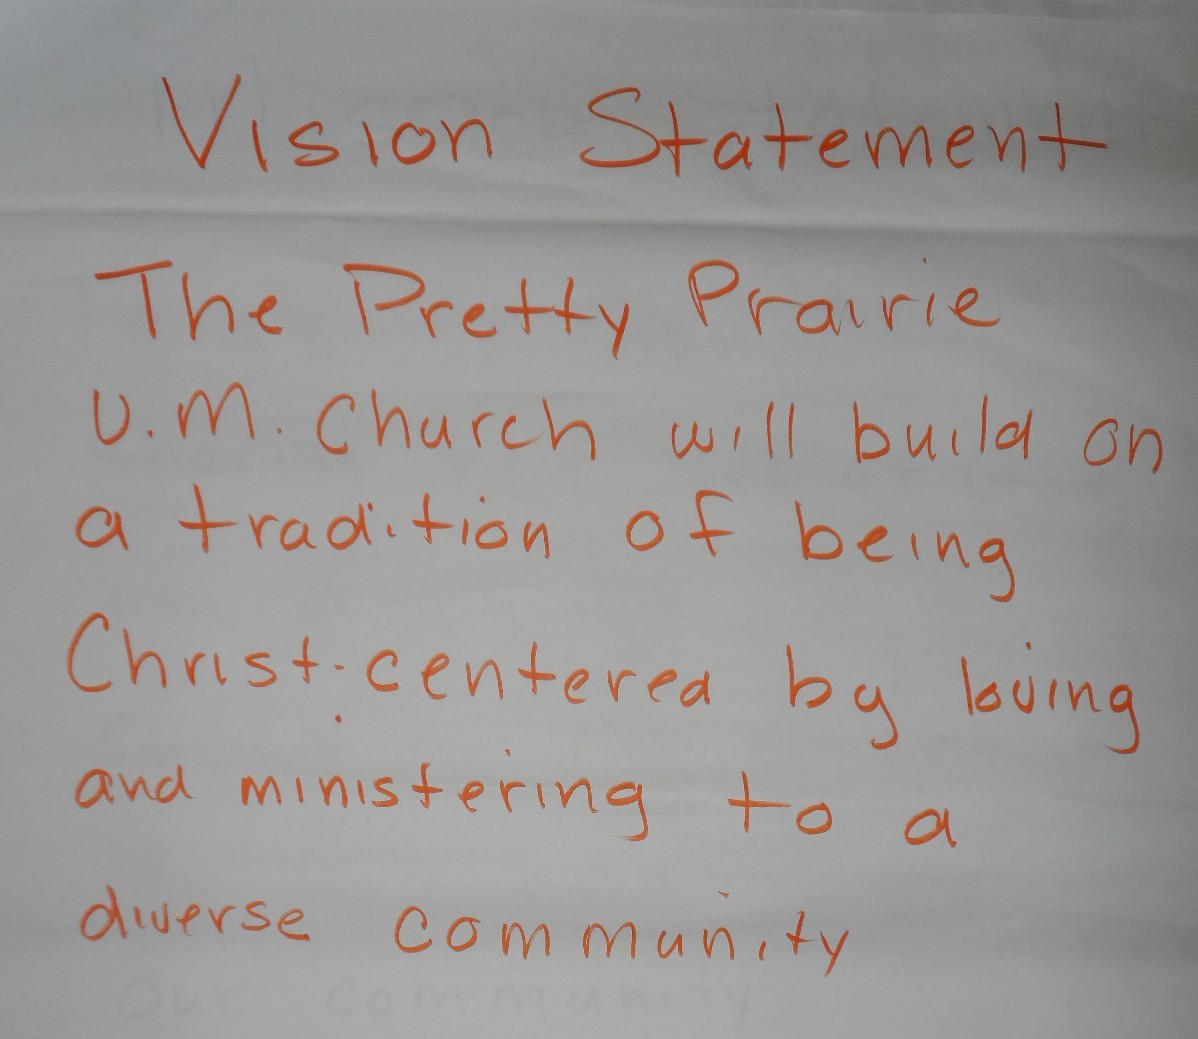 Vision Statement
The Pretty Prairie
U.M. Church will build on
a tradition of being
Christ-centered by loving
and ministering to a
diverse community
our community